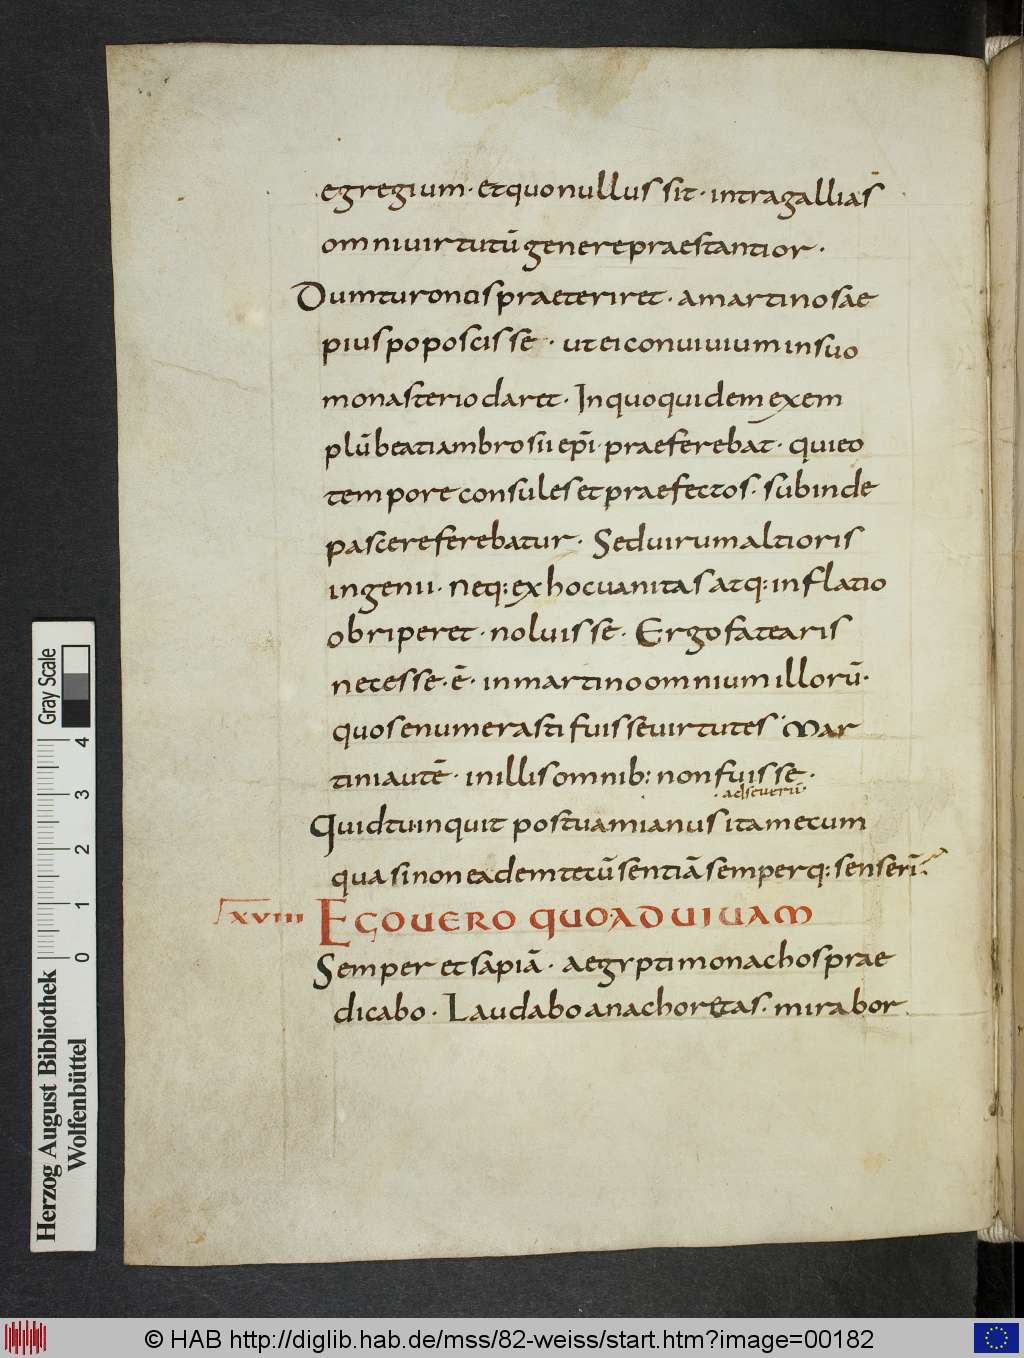 egregium · et quo nullus sit · intra gallias
omni virtutū genere praestantior ·
Dum turoncis praeteriret · a martino sae
pius poposcisse · ut ei convivium in suo
monasterio daret · In quo quidem exem
plū beati ambrosii ep̄i · praeferebat · qui eo
tempore consules et praefectos · subinde
pascere ferebatur · Sed virum altioris
ingenii · neq: ex hoc vanitas atq: inflatio
obriperet · noluisse · Ergo fatearis
necesse · ē · in martino omnium illorū ·
quos enumerasti fuisse virtutes · Mar
tini autē · in illis omnib: non fuisse ·
· ad severū ·
Quid tu inquit postuamianus ita mecum
quasi non eadem tecū sentiā semperq: senserī ·
XVIII EGO VERO QUOAD VIVAM
Semper et sapiā · aegypti monachos prae
dicabo · Laudabo anachoretas · mirabor
Herzog August Bibliothek
Wolfenbüttel
0 1 2 3 4
Gray Scale
© HAB http://diglib.hab.de/mss/82-weiss/start.htm?image=00182